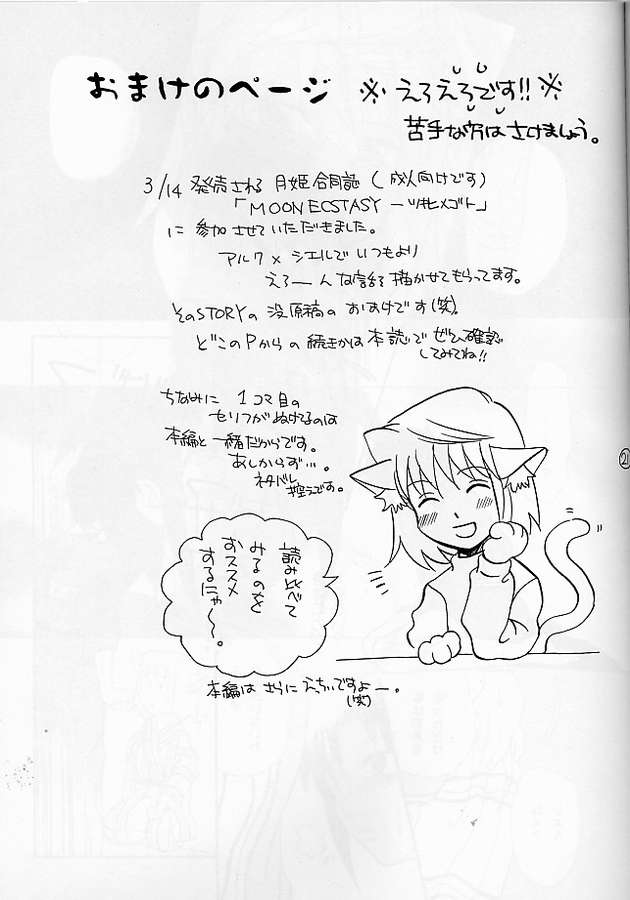 おまけのページ ※えろえろです!!※
苦手な方はさけましょう。
3/14 発売される 月姫合同誌 (成人向けです)
「MOON ECSTASY ー ツキヒメゴト」
に 参加させていただきました。
アルク×シエルで いつもより
えろーーんな話を描かせてもらってます。
そのSTORYの 没原稿の おまけです(笑)。
どこのPからの 続きかは 本誌で ぜひ確認
してみてね!!
ちなみに 1コマ目の
セリフがぬけてるのは
本編と一緒だからです。
あしからず…。
ネタバレ
控えです。
読み比べて
みるのを
おススメ
するにゃ〜〜。
本編は さらに えっちぃですよー。
(笑)